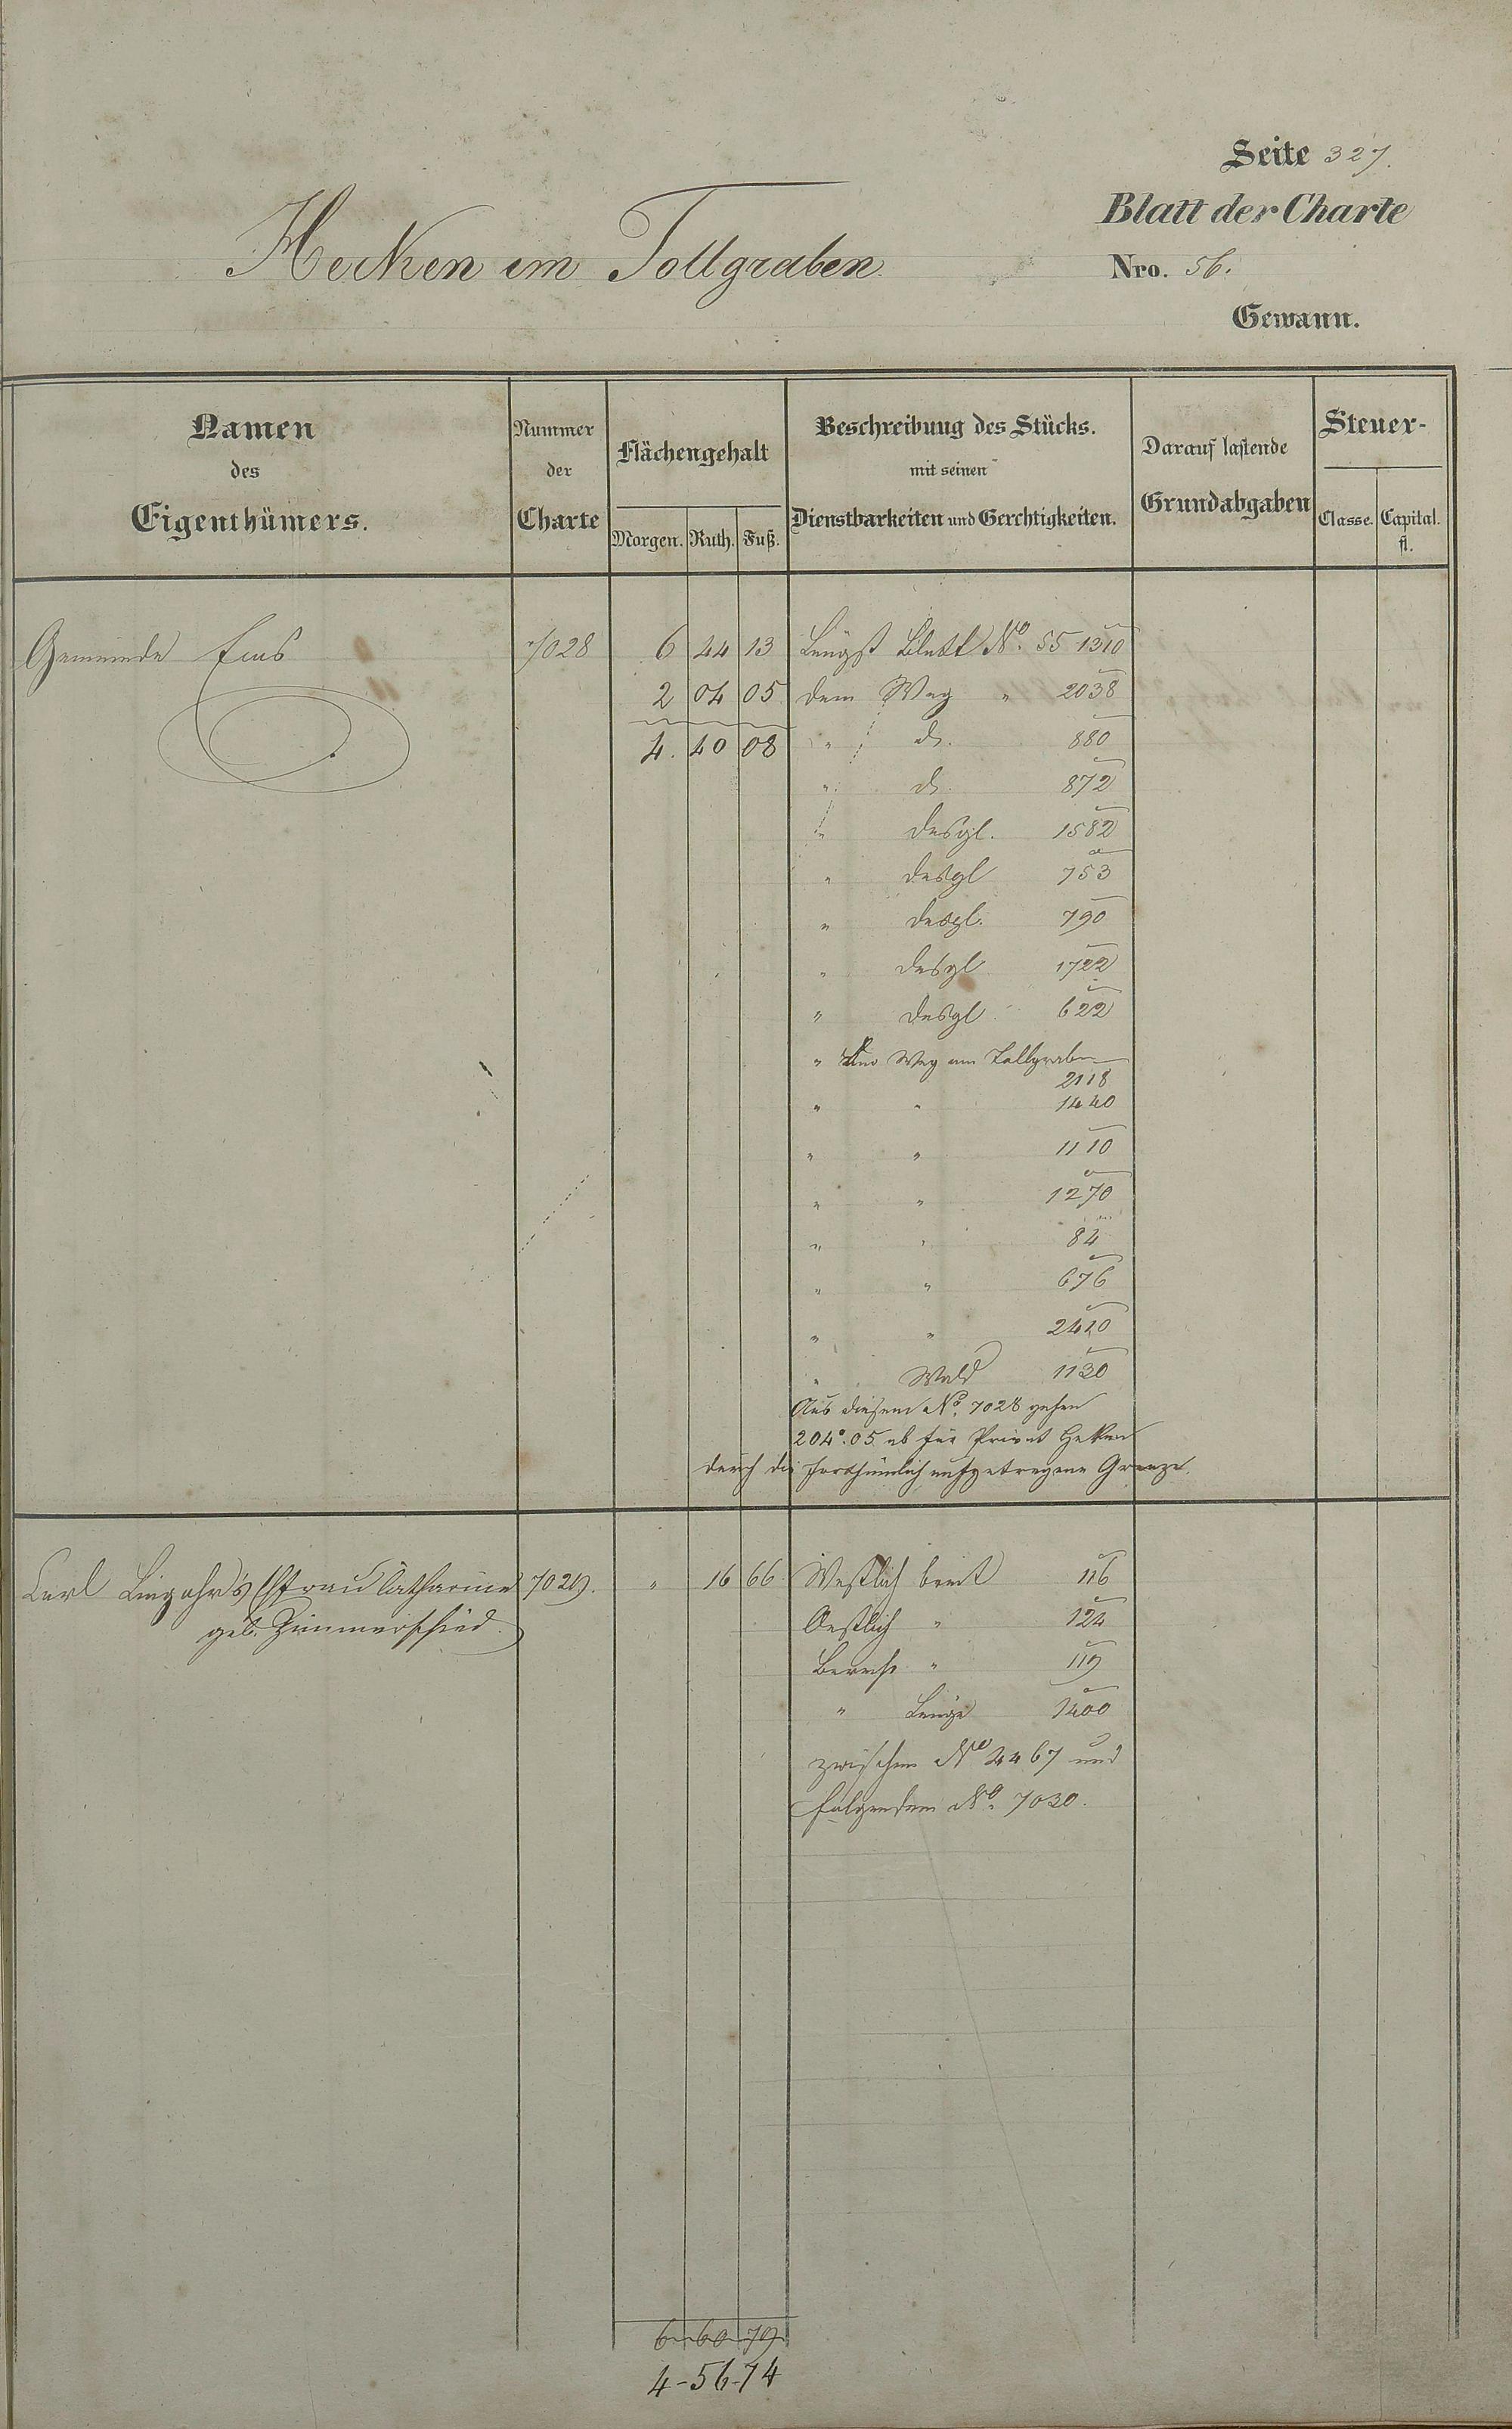 Seite 327.
Blatt der Charte
Hecken im Tollgraben.
Nro. 56.
Gewann.
Namen
des
Eigenthümers.
Nummer
der
Charte
Flächengehalt
Morgen. Ruth. Fuß.
Beschreibung des Stücks.
mit seinen
Dienstbarkeiten und Gerchtigkeiten.
Darauf lastende
Grundabgaben
Steuer-
Classe. Capital.
fl.
Gemeinde Ems 7028 6 44 13 Längst Blatt No. 55 1310
2 04 05 dem Weg " 2038
4. 40 08 " do. 880
" do. 872
" desgl. 1582
" desgl 753
" desgl. 790
" desgl 1722
" desgl 622
" Weg am Tollgraben
2118
" " 1440
" " 1110
" " 1270
" " 84
" " 676
" " 2410
" Wald 1130
Aus diesem No. 7028 gehen
204°.05 ab für Privat Hecken
durch die aufgetragene Grenze.
Carl Linzahr's Ehefrau Catharine 7029. " 16 66 Westlich breit 116
geb. Zimmerschied. Oestlich " 124
" 119
" Länge 1400
zwischen No 4467 und
folgendem No. 7030.
6-60-79
4-56-74